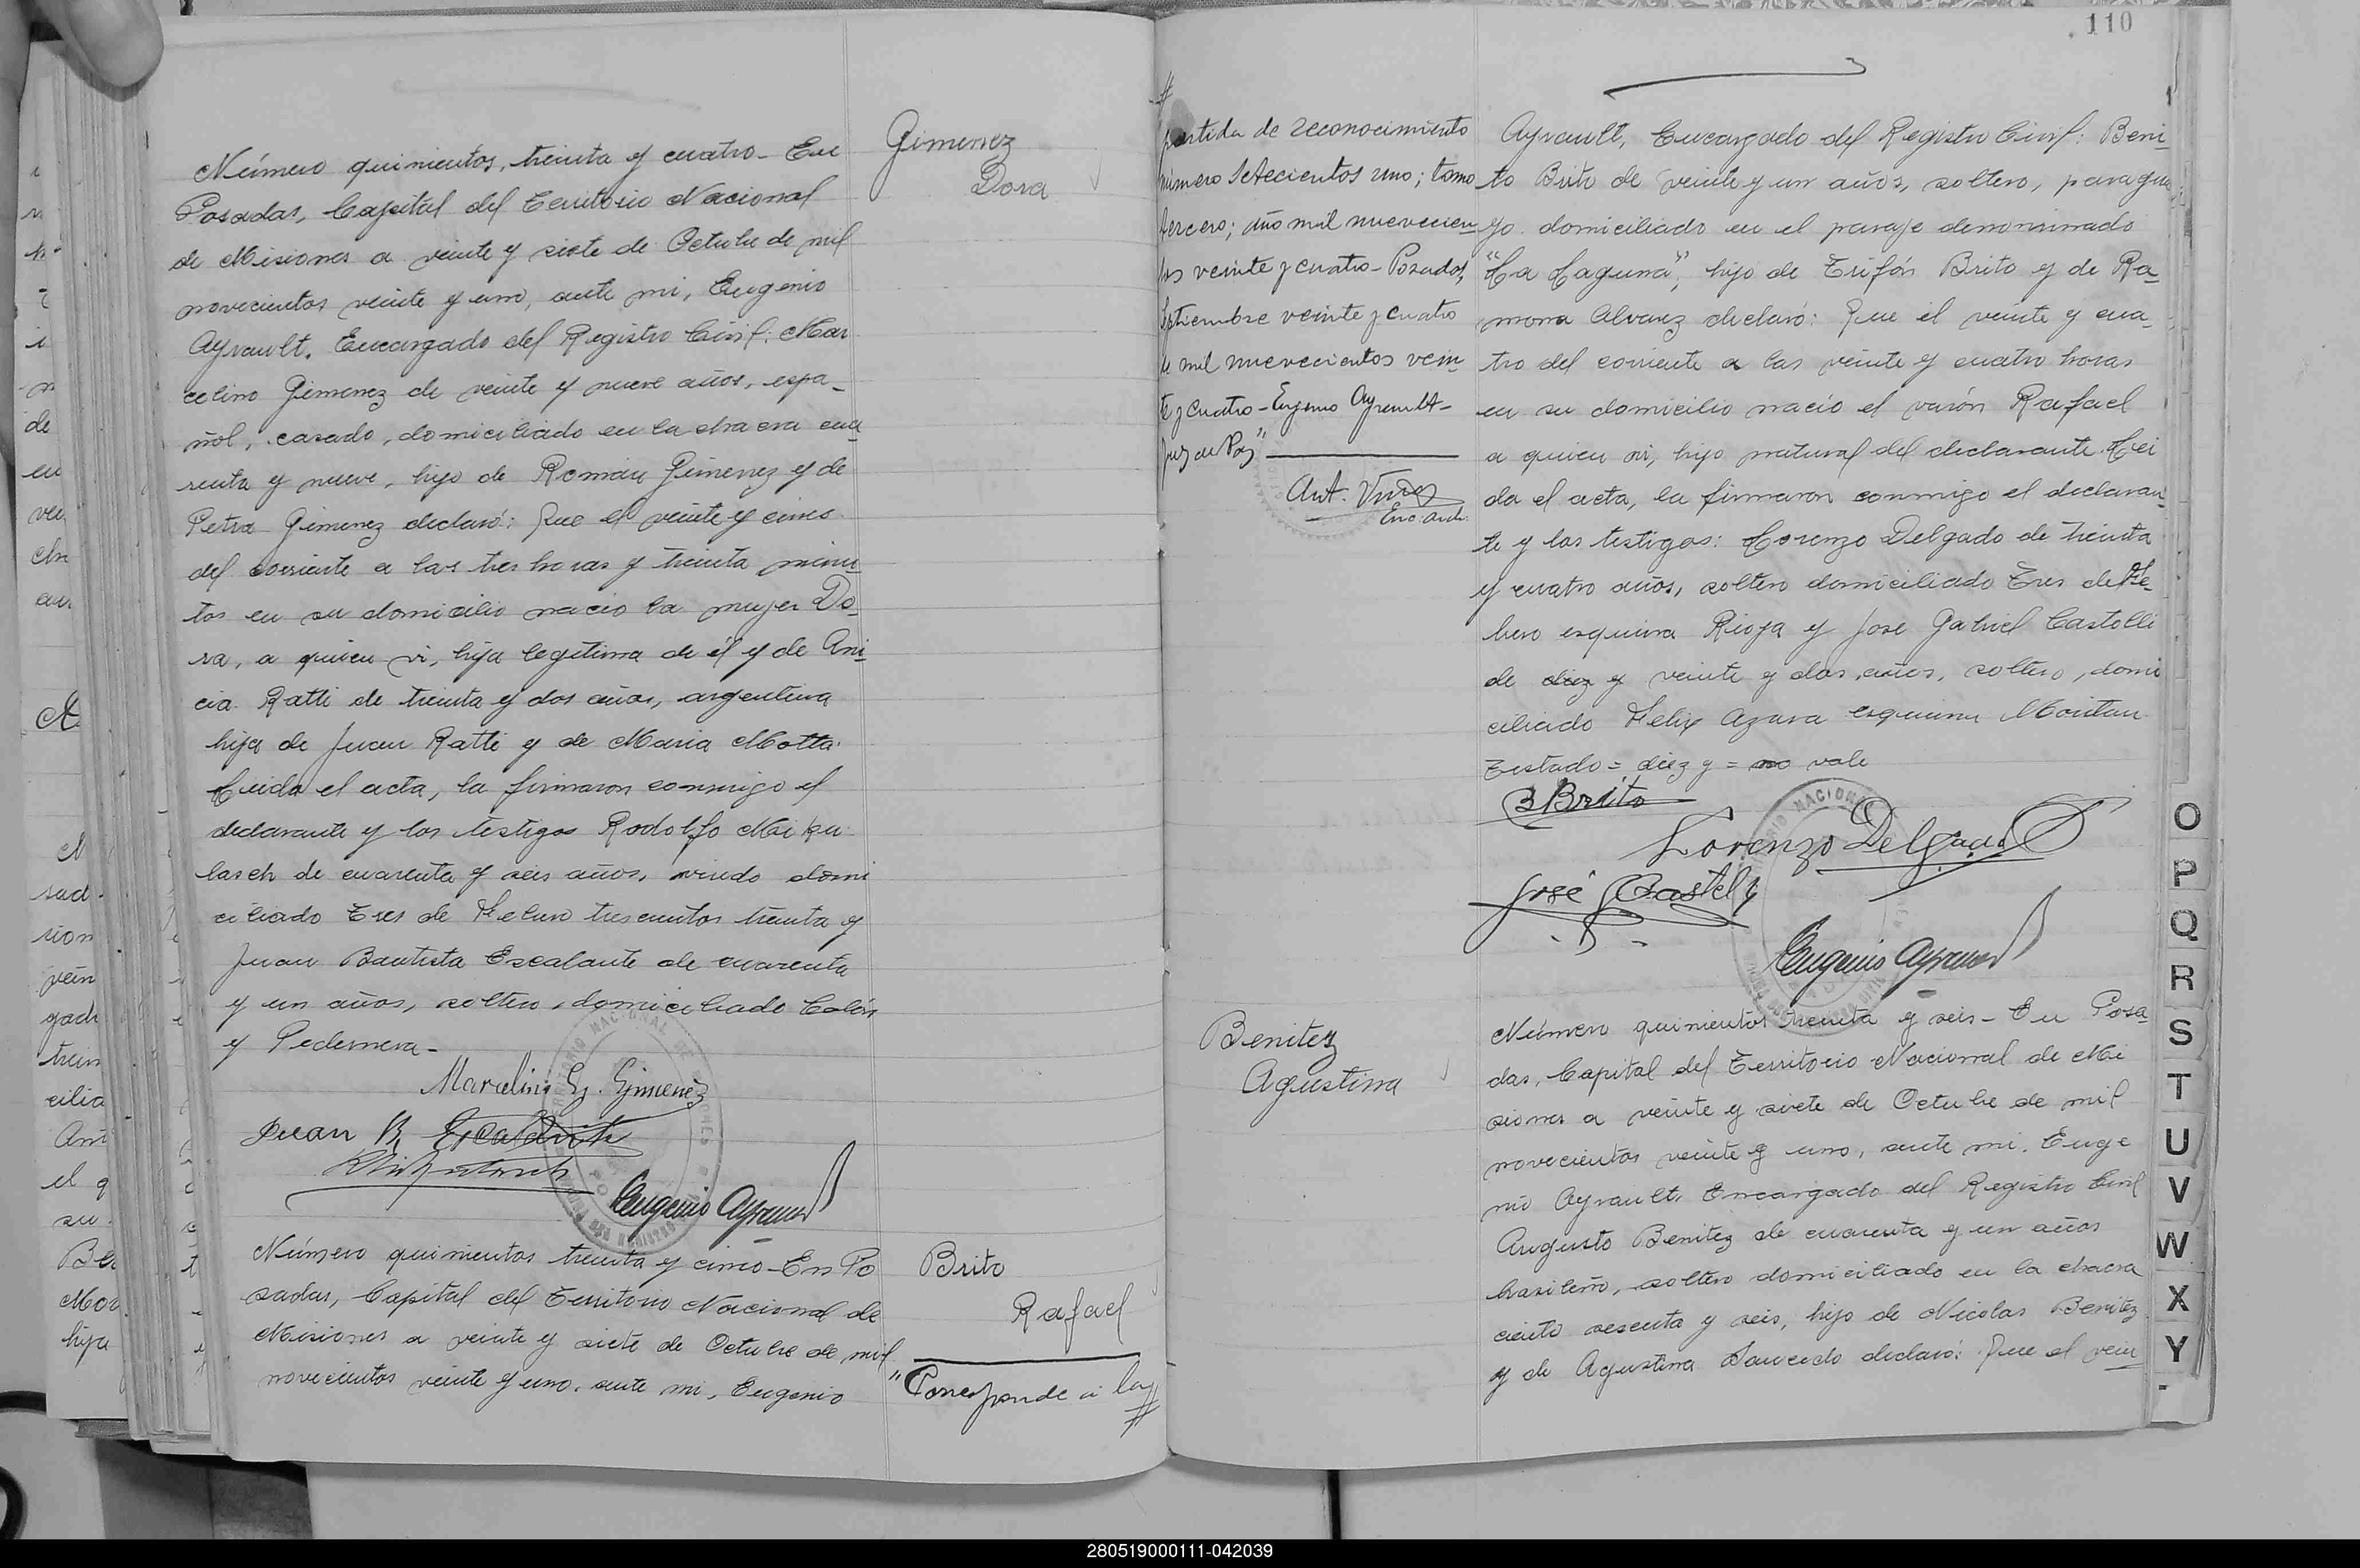 Gimenez
Dora
Número quinientos, treinta y cuatro - En
Posadas, Capital del Territorio Nacional
de Misiones a veinte y siete de Octubre de mil
novecientos veinte y uno, ante mi, Eugenio
Ayrault, Encargado del Registro Civil: Mar
celino Gimenez de veinte y nueve años, espa-
ñol, casado, domiciliado en la chacra cua
renta y nueve, hijo de Roman Gimenez y de
Petra Gimenez declaró: Que el veinte y cinco
del corriente a las tres horas y treinta minu-
tos en su domicilio nació la mujer Do-
ra, a quien vi, hija legitima de él y de Ani-
cia Ratti de treinta y dos años, argentina
hija de Juan Ratti y de Maria Motta.
Leida el acta, la firmaron conmigo el
declarante y los testigos Rodolfo Miku
lasch de cuarenta y seis años, viudo domi
ciliado Tres de Febrero trescientos treinta y
Juan Bautista Escalante de cuarenta
y un años, soltero, domiciliado Colón
y Pedernera-
Marcelino G. Gimenez
Juan B. Escalante
Eugenio Ayrault
Brito
Rafael
"Corresponde a la
#
Número quinientos treinta y cinco - En Po
sadas, Capital del Territorio Nacional de
Misiones a veinte y siete de Octubre de mil
novecientos veinte y uno, ante mi, Eugenio
110
#
partida de reconocimiento
número setecientos uno; tomo
tercero; año mil novecien-
tos veinte y cuatro - Posadas,
Septiembre veinte y cuatro
de mil novecientos vein-
te y cuatro - Eugenio Ayrault -
Juez de Paz"
Ant.
Enc. Arch.
Ayrault, Encargado del Registro Civil: Beni-
to Brito de veinte y un años, soltero, paragua
yo domiciliado en el paraje denominado
"La Laguna", hijo de Trifón Brito y de Ra-
mona Alvarez declaró: Que el veinte y cua-
tro del corriente a las veinte y cuatro horas
en su domicilio nació el varón Rafael
a quien vi, hijo natural del declarante. Lei
da el acta, la firmaron conmigo el declaran-
te y los testigos: Lorenzo Delgado de treinta
y cuatro años, soltero domiciliado Tres de Fe-
brero esquina Rioja y Jose Gabriel Castelli
de diez y veinte y dos años, soltero, domi
ciliado Felix Azara esquina
Testado = diez y = no vale
B Brito
Lorenzo Delgado
José G Castelli
Eugenio Ayrault
Benitez
Agustina
Número quinientos treinta y seis - En Posa-
das, Capital del Territorio Nacional de Mi
siones a veinte y siete de Octubre de mil
novecientos veinte y uno, ante mi, Euge
nio Ayrault, Encargado del Registro Civil
Augusto Benitez de cuarenta y un años
brasileño, soltero domiciliado en la chacra
ciento sesenta y seis, hijo de Nicolas Benitez
y de Agustina Saucedo declaró: Que el vein-
O
P
Q
R
S
T
U
V
W
X
Y
280519000111-042039